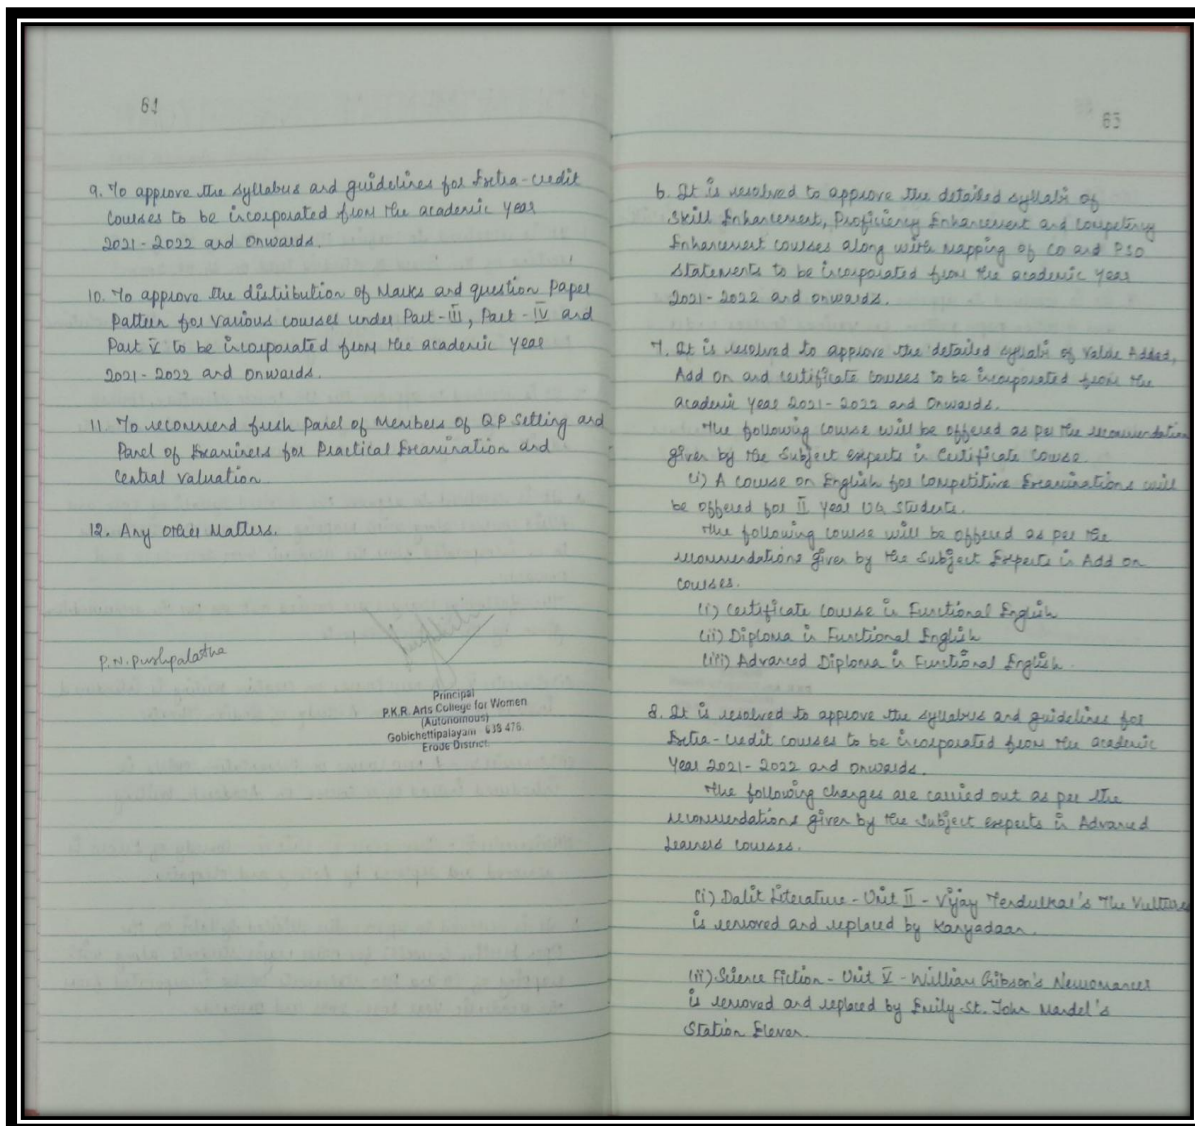 61
9. To approve the syllabus and guidelines for Extra-credit
Courses to be incorporated from the academic year
2021-2022 and Onwards.
10. To approve the distribution of Marks and question Paper
Pattern for various courses under Part-III, Part-IV and
Part V to be incorporated from the academic year
2021-2022 and Onwards.
11. To recommend fresh Panel of Members of QP Setting and
Panel of Examiners for Practical Examination and
Central Valuation.
12. Any Other Matters.
P.N. Pushpalatha
Principal
P.K.R. Arts College for Women
(Autonomous)
Gobichettipalayam - 638 476.
Erode District.
65
6. It is resolved to approve the detailed syllabi of
Skill Enhancement, Proficiency Enhancement and Competency
Enhancement courses along with Mapping of CO and PSO
Statements to be incorporated from the academic year
2021-2022 and onwards.
7. It is resolved to approve the detailed syllabi of Value Added,
Add On and Certificate Courses to be incorporated from the
academic Year 2021-2022 and Onwards.
The following Course will be offered as per the recommendation
given by the Subject experts in Certificate Course
(i) A Course on English for Competitive Examinations will
be offered for II Year UG Students.
The following Course will be offered as per the
recommendations given by the Subject Experts in Add on
Courses.
(i) Certificate Course in Functional English
(ii) Diploma in Functional English
(iii) Advanced Diploma in Functional English.
8. It is resolved to approve the syllabus and guidelines for
Extra-Credit courses to be incorporated from the academic
Year 2021-2022 and onwards.
The following changes are carried out as per the
recommendations given by the Subject experts in Advanced
Learners Courses.
(i) Dalit Literature - Unit II - Vijay Tendulkar's The Vultures
is removed and replaced by Kanyadaan.
(ii) Science Fiction - Unit V - William Gibson's Neuromancer
is removed and replaced by Emily St. John Mandel's
Station Eleven.